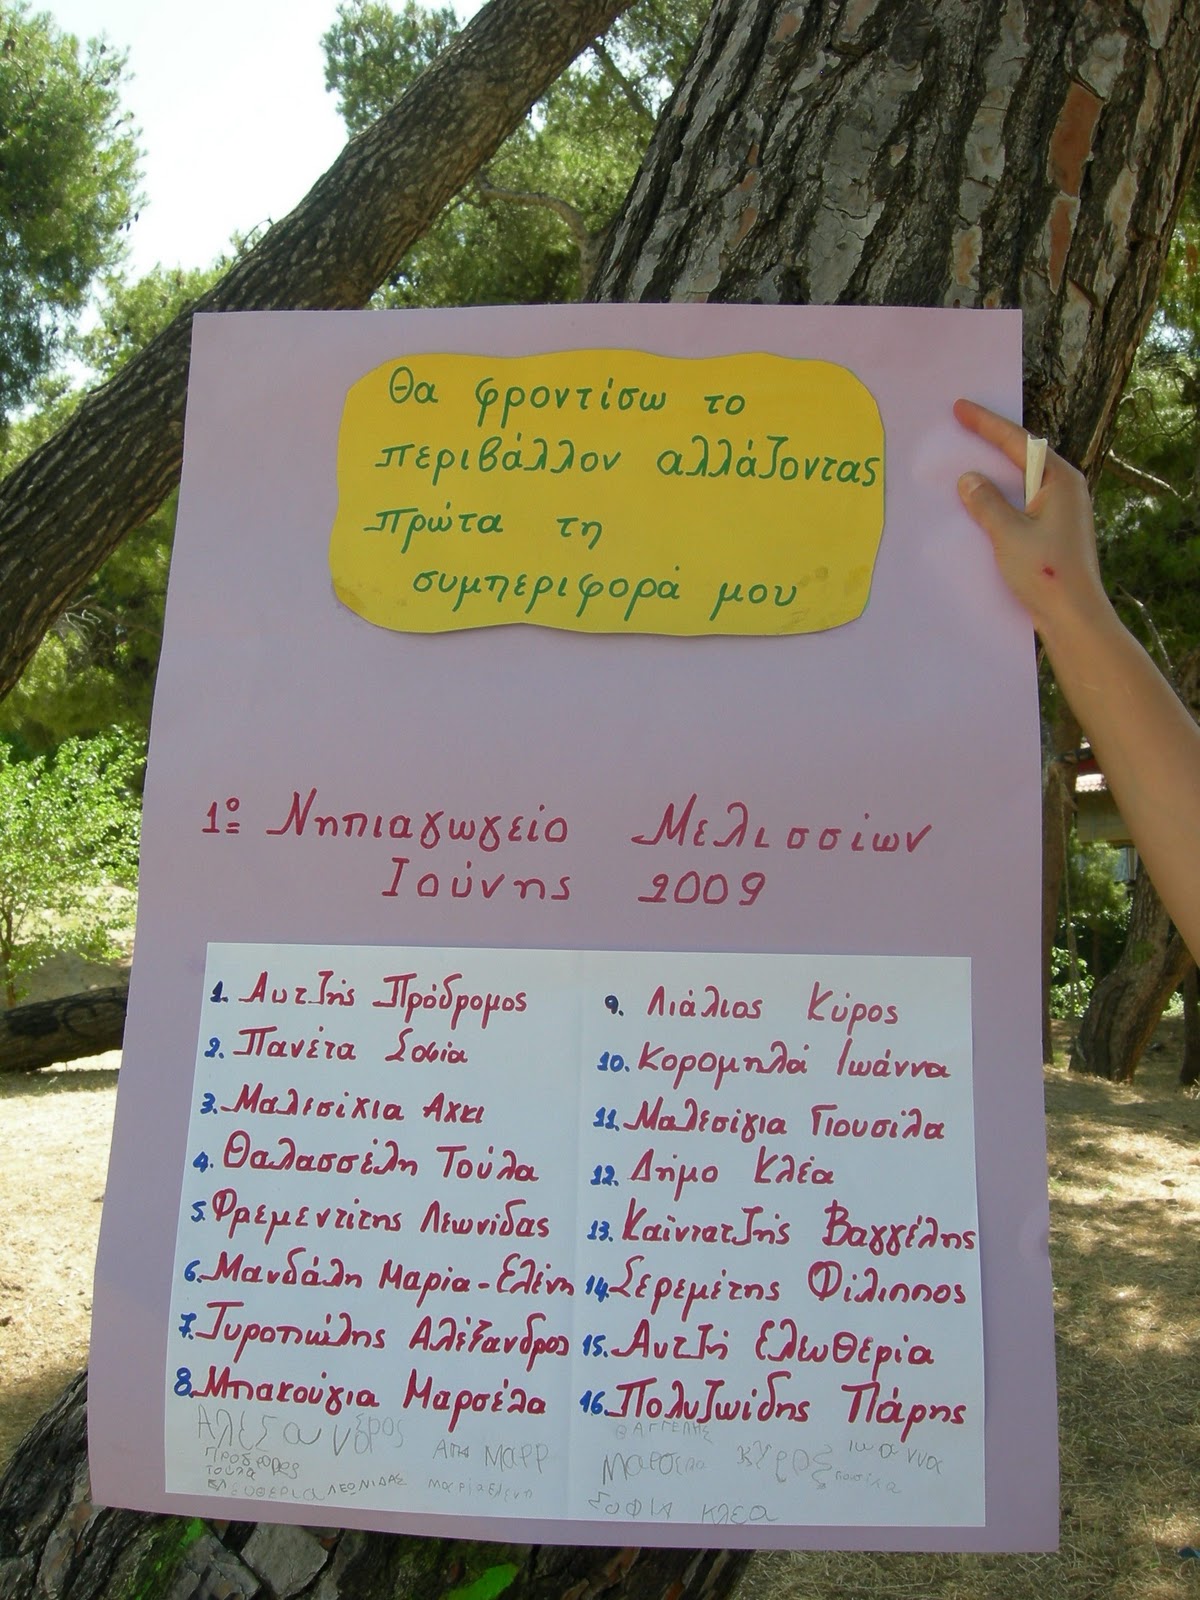 Θα φροντίσω το
περιβάλλον αλλάζοντας
πρώτα τη
συμπεριφορά μου
1º Νηπιαγωγείο Μελισσίων
Ιούνης 2009
1. Αυτζής Πρόδρομος
2. Πανέτα Σοφία
3. Μαλεσίχια Αχει
4. Θαλασσέλη Τούλα
5. Φρεμεντίτης Λεωνίδας
6. Μανδάλη Μαρία-Ελένη
7. Τυροπώλης Αλέξανδρος
8. Μπακούγια Μαρσέλα
9. Λιάλιος Κύρος
10. Κορομηλά Ιωάννα
11. Μαλεσίγια Γιουσίλα
12. Δήμο Κλέα
13. Καϊντατζής Βαγγέλης
14. Σερεμέτης Φίλιππος
15. Αυτζή Ελευθερία
16. Πολυζωίδης Πάρης
ΑΛΕΞΑΝΔΡΟΣ
ΠΡΟΔΡΟΜΟΣ
ΤΟΥΛΑ
ΕΛΕΥΘΕΡΙΑ ΛΕΩΝΙΔΑΣ ΜΑΡΙΑΕΛΕΝΗ
ΒΑΓΓΕΛΗΣ
ΜΑΡΣΕΛΑ ΚΥΡΟΣ ΙΩΑΝΝΑ
ΣΟΦΙΑ ΚΛΕΑ